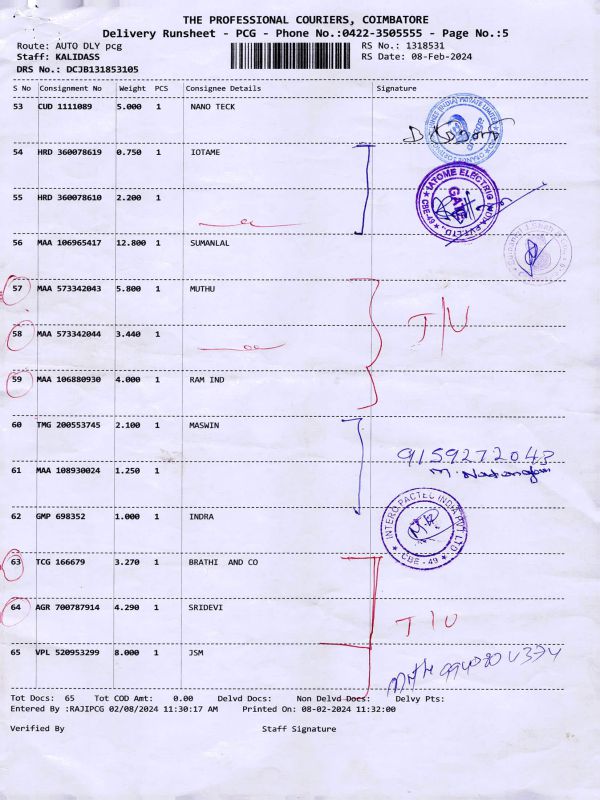 THE PROFESSIONAL COURIERS, COIMBATORE
Delivery Runsheet - PCG - Phone No.:0422-3505555 - Page No.:5
Route: AUTO DLY pcg RS No.: 1318531
Staff: KALIDASS RS Date: 08-Feb-2024
DRS No.: DCJB131853105
S No Consignment No Weight PCS Consignee Details Signature
53 CUD 1111089 5.000 1 NANO TECK
54 HRD 360078619 0.750 1 IOTAME
55 HRD 360078610 2.200 1
IATOME ELECTRIC INDIA PVT LTD
GATE
CBE-49
56 MAA 106965417 12.800 1 SUMANLAL
57 MAA 573342043 5.800 1 MUTHU
T/U
58 MAA 573342044 3.440 1
59 MAA 106880930 4.000 1 RAM IND
60 TMG 200553745 2.100 1 MASWIN
9159272043
61 MAA 108930024 1.250 1
62 GMP 698352 1.000 1 INDRA
INTERO PACTEC INDIA PVT LTD
CBE - 49
63 TCG 166679 3.270 1 BRATHI AND CO
64 AGR 700787914 4.290 1 SRIDEVI
T/U
65 VPL 520953299 8.000 1 JSM
Tot Docs: 65 Tot COD Amt: 0.00 Delvd Docs: Non Delvd Docs: Delvy Pts:
Entered By :RAJIPCG 02/08/2024 11:30:17 AM Printed On: 08-02-2024 11:32:00
Verified By Staff Signature